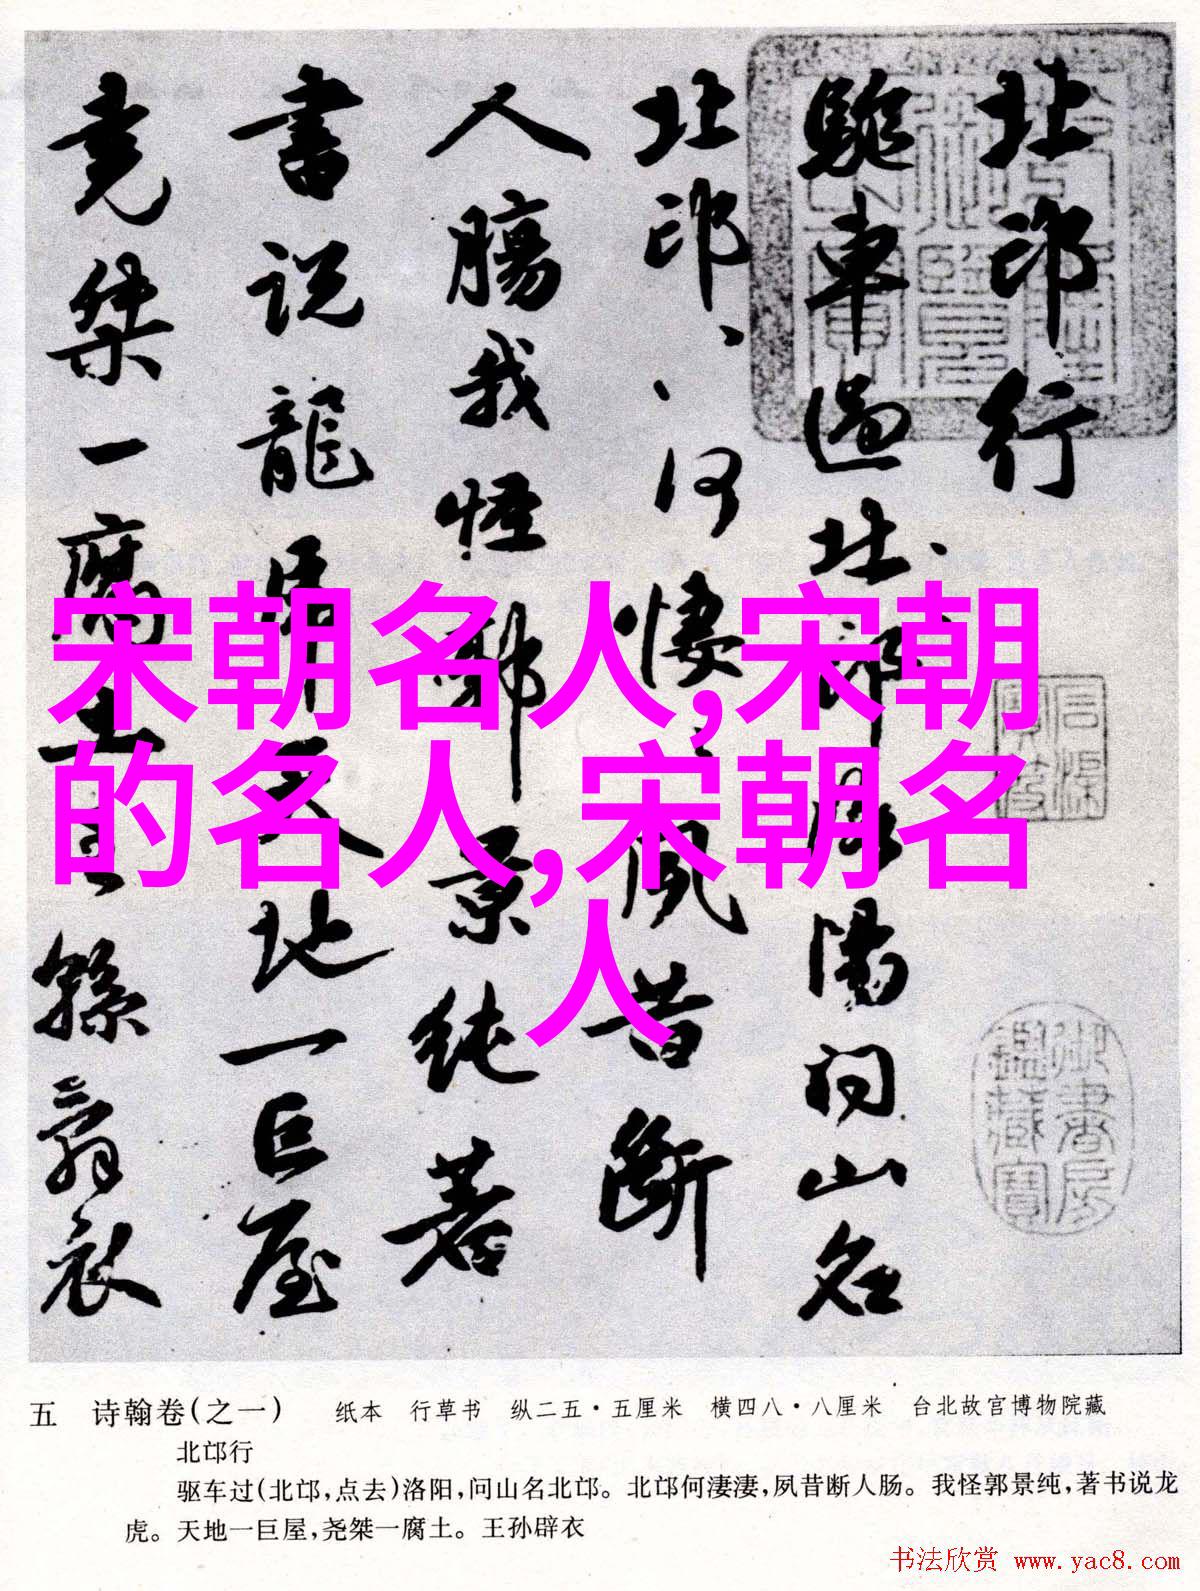 北邙行
驅車過北邙、洛陽問山名
北邙、、何悽悽夙昔斷
人腸我怪郭景純著
書説龍虎天地一巨屋
堯桀一腐土王孫辟衣
宋朝名人,宋朝
的名人,宋朝名
人
御書房鑑藏寶
五 诗翰卷(之一) 纸本 行草书 纵二五·五厘米 横四八·八厘米 台北故宫博物院藏
北邙行
驱车过(北邙,点去)洛阳,问山名北邙。北邙何凄凄,夙昔断人肠。我怪郭景纯,著书说龙
虎。天地一巨屋,尧桀一腐土。王孙辟衣
书法欣赏 www.yac8.com